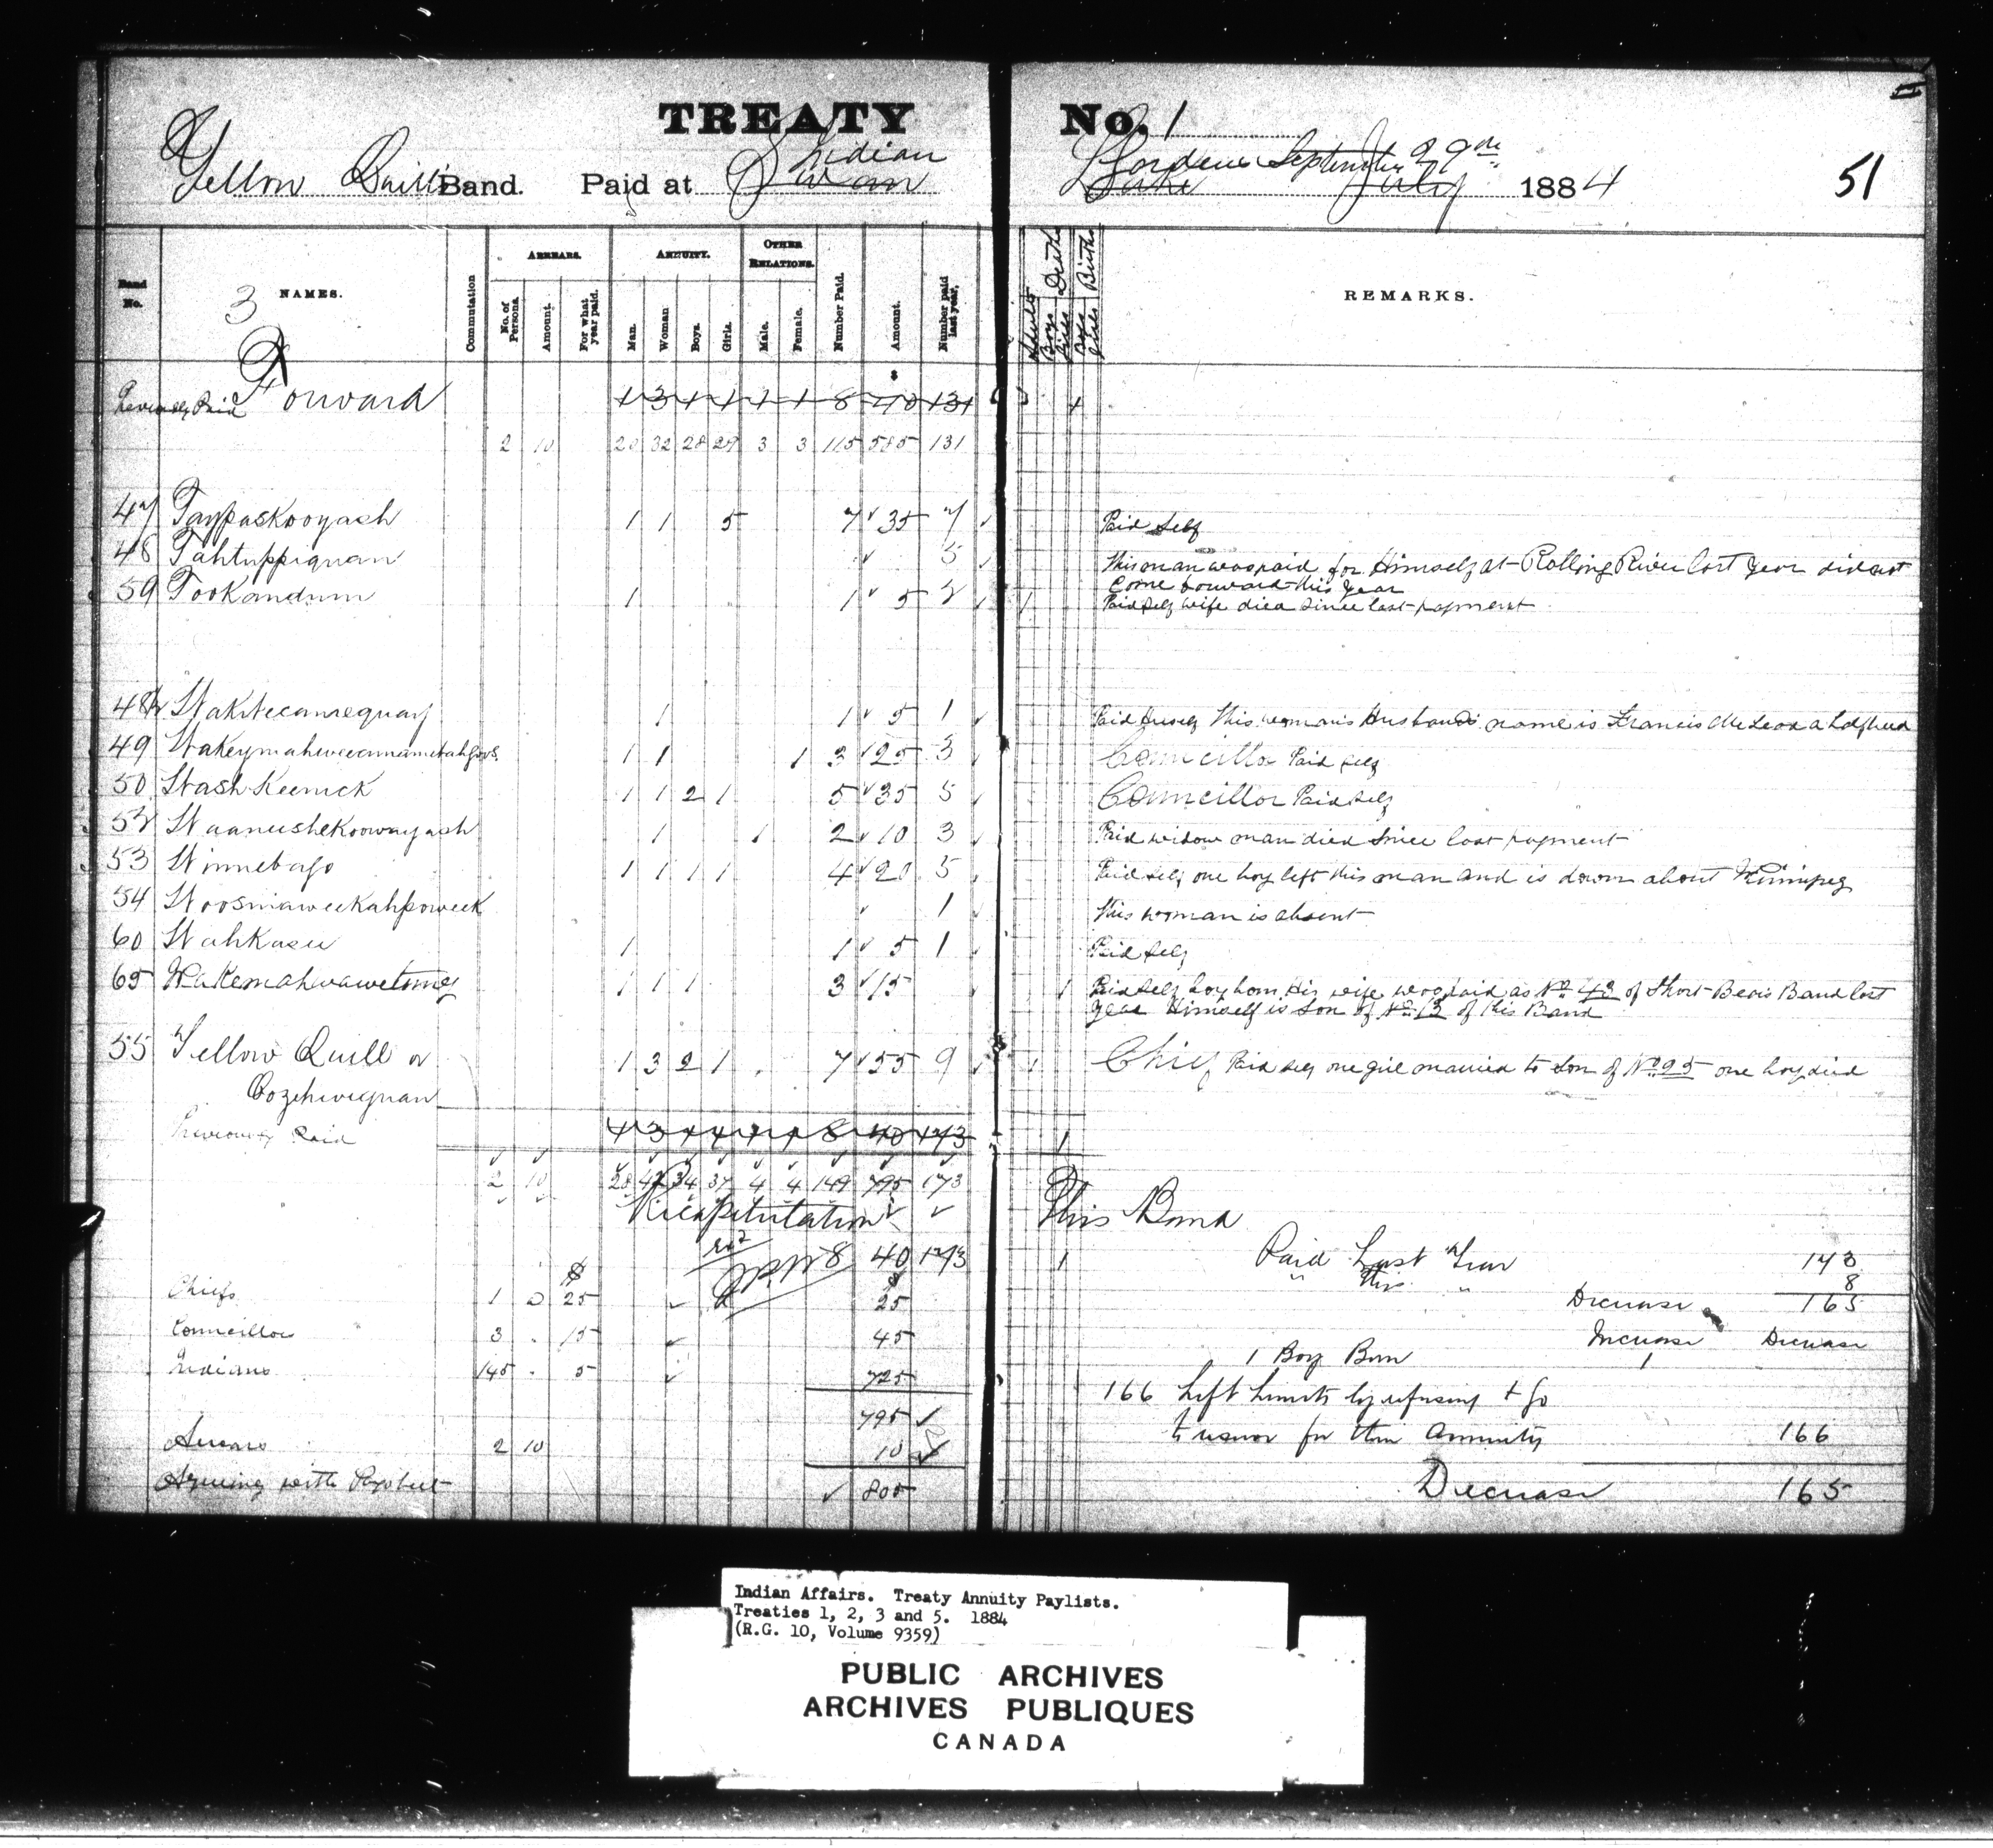 TREATY No. 1
Yellow Quill's Band. Paid at Indian Gardens September 29th 1884 51
Swan Lake July
Band No.
NAMES.
Commutation
ARREARS.
No. of Persons.
Amount.
For what year paid.
ANNUITY.
Man.
Woman
Boys.
Girls.
OTHER RELATIONS.
Male.
Female.
Number Paid.
Amount.
Number paid last year,
Adults Boys Girls Deaths
Boys Girls Births
REMARKS.
3
Previously Paid Forward 1 3 1 1 1 1 8 40 131
2 10 20 32 28 29 3 3 115 585 131
47 Taypaskooyash 1 1 5 7 35 7 Paid Self
48 Tahtuppiquan 3 This man was paid for Himself at Rolling River last year did not
Come forward this Year
59 Tookandum 1 1 5 2 1 Paid Self wife died since last payment
1 1 5 1 Paid Herself This woman's Husband's name is Francis McLeod a halfbreed
49 1 1 1 3 25 3 Councillor Paid self
50 Wash Keenick 1 1 2 1 5 35 5 Councillor Paid Self
52 Waaneshekoowayash 1 1 2 10 3 Paid widow man died since last payment
53 Winnebago 1 1 1 1 4 20 5 Paid self one boy left this man and is down about Winnipeg
54 Woosniaweekahpoweek 1 This woman is absent
60 Wahkasu 1 1 5 1 Paid Self
65 Wakemahwawetung 1 1 1 3 15 1 Paid Self boy born His wife was paid as No 43 of Short Bears Band last
year Himself is Son of No 13 of this Band
55 Yellow Quill or 1 3 2 1 7 55 9 1 Chief Paid Self one girl married to Son of No 25 one boy died
Oozehwequan
Previously Paid 8 40 173 1
2 10 28 42 34 37 4 4 149 795 173
Recapitulation This Band
8 40 173 1 Paid Last Year 173
" This " 8
Chiefs 1 25 25 Decrease 165
Councillors 3 15 45 Increase Decrease
1 Boy Born 1
Indians 145 5 725
166 Left Limits by refusing to go
795
to reserve for their Annuity 166
Arrears 2 10 10
Agreeing with Paysheet 805 Decrease 165
Indian Affairs. Treaty Annuity Paylists.
Treaties 1, 2, 3 and 5. 1884
(R.G. 10, Volume 9359)
PUBLIC ARCHIVES
ARCHIVES PUBLIQUES
CANADA